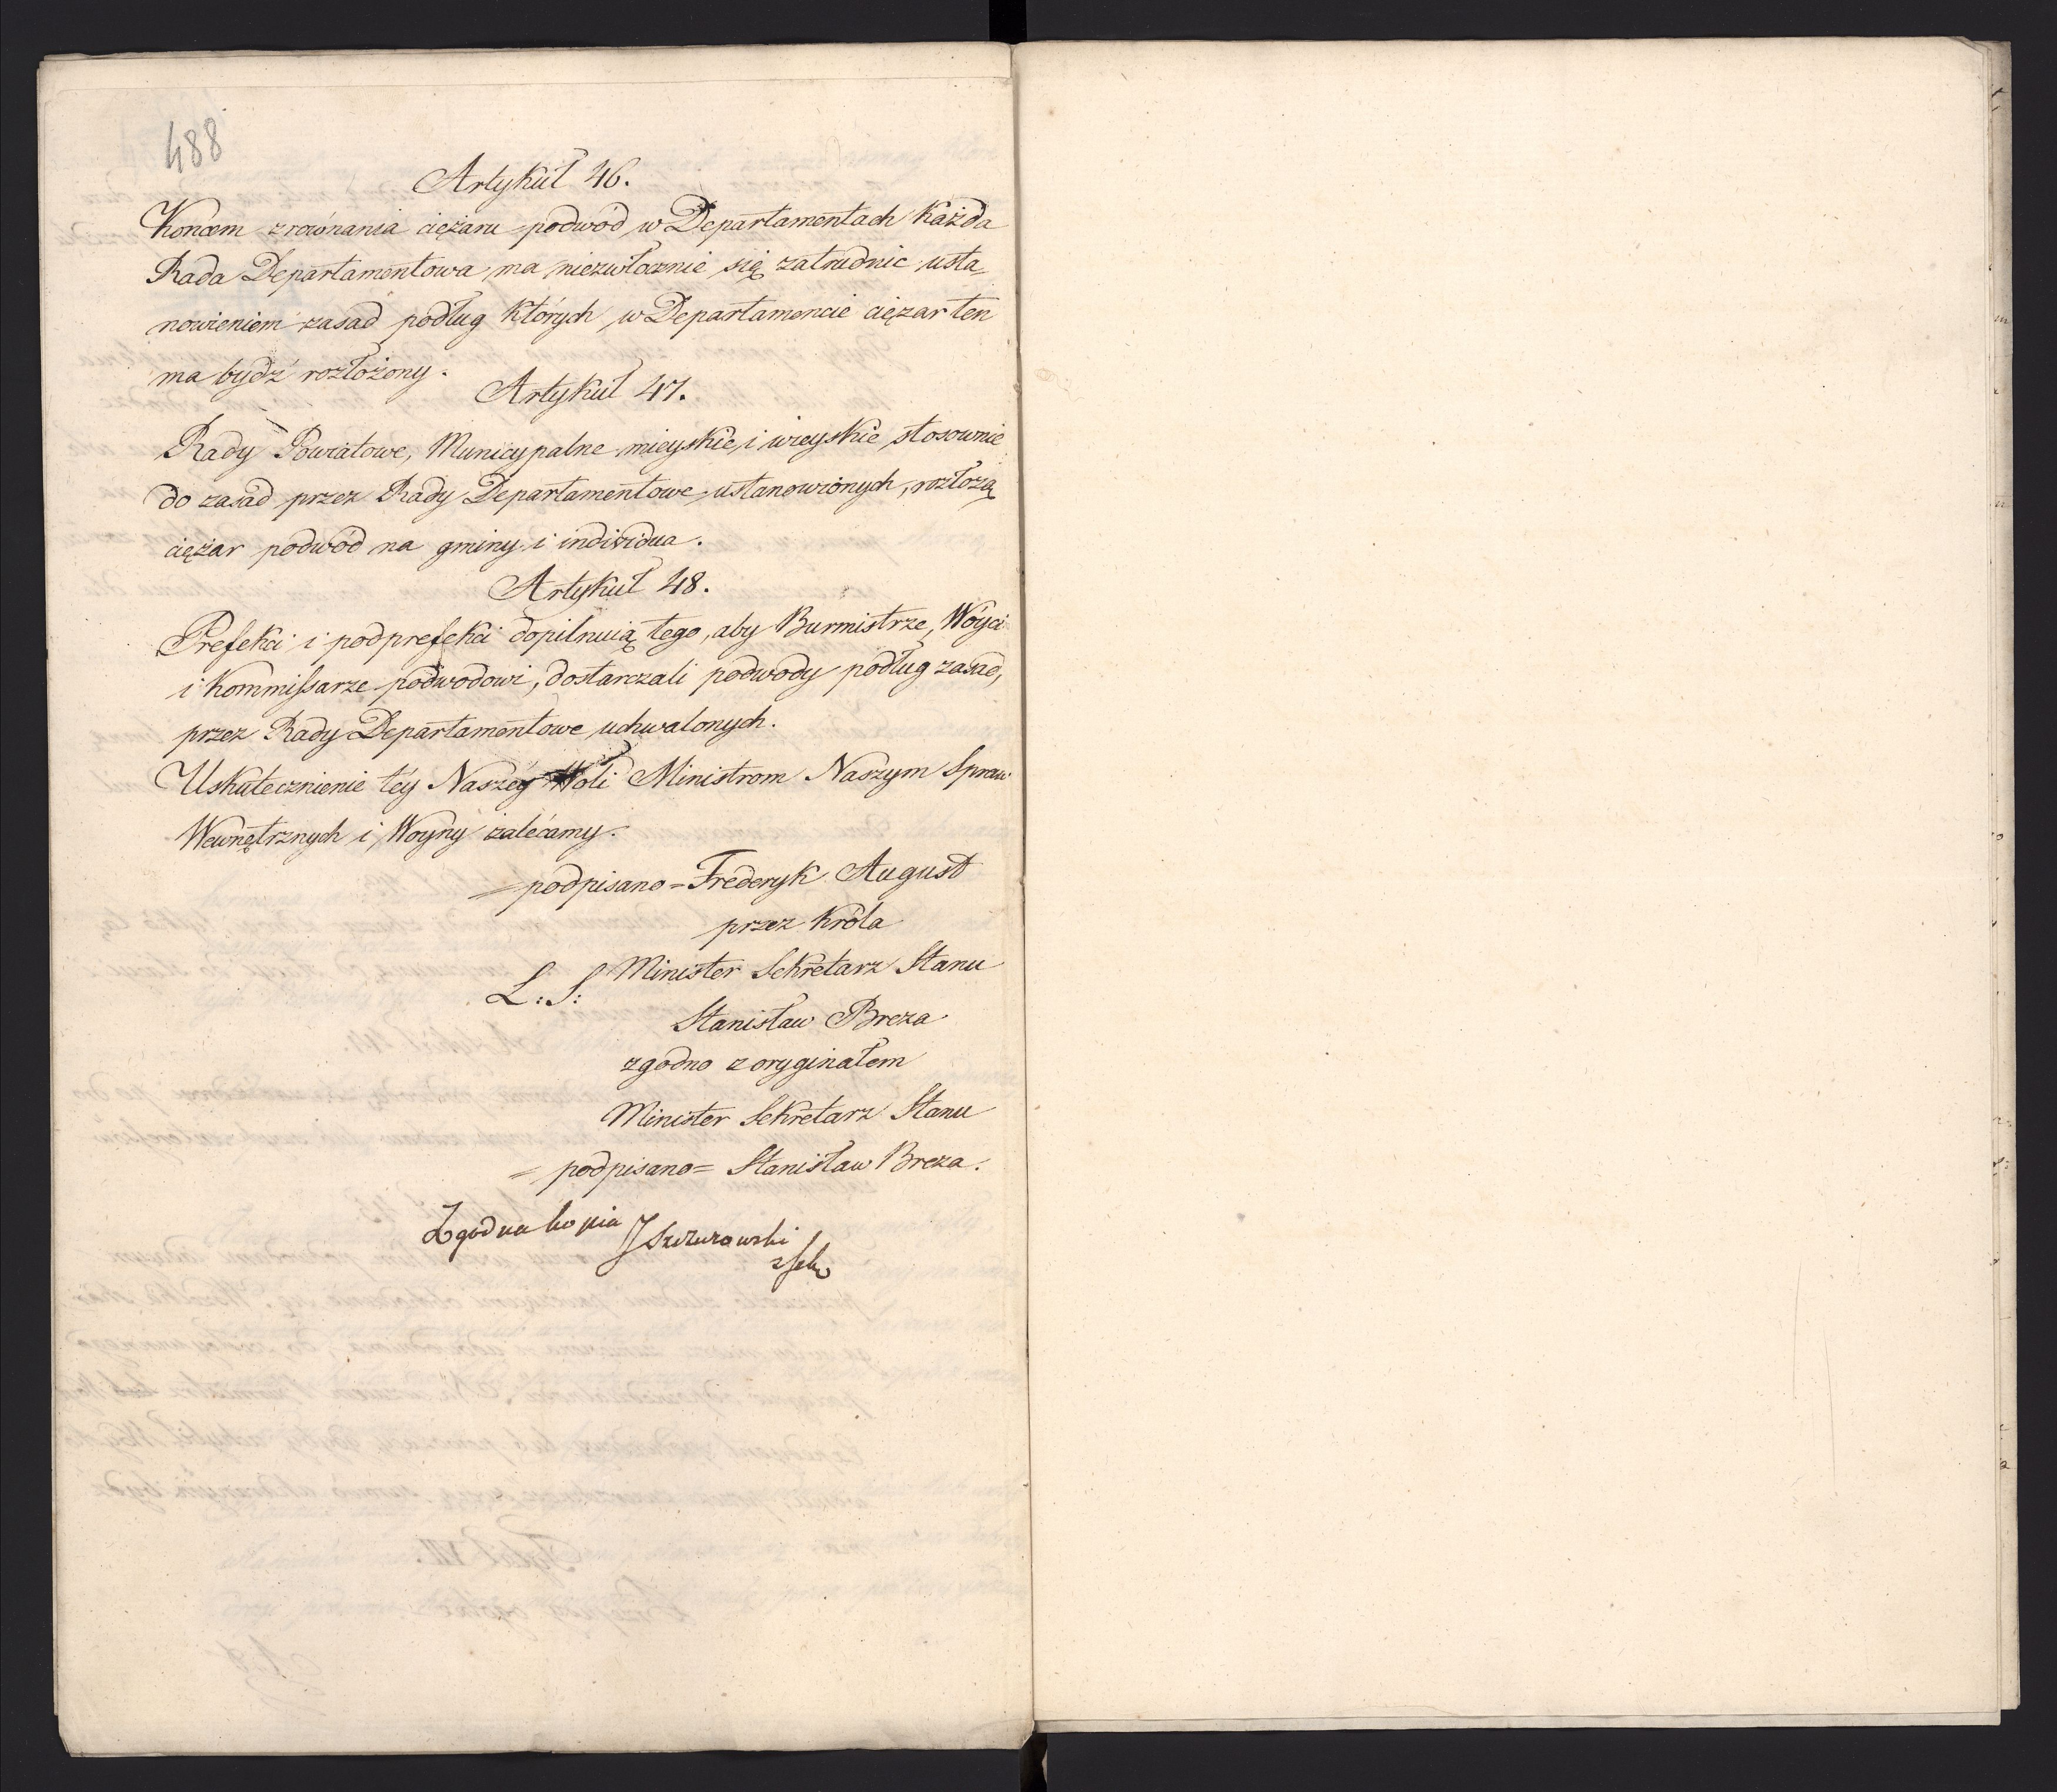 488
Artykuł 46.
Końcem zrównania ciężaru podwód w Departamentach Każda
Rada Departamentowa, ma niezwłocznie się zatrudnic usta=
nowieniem zasad podług których w Departamencie ciężar ten
ma bydź rozłożony.
Artykuł 47.
Rady Powiatowe, Municypalne mieyskie, i wieyskie, stosownie
do zasad przez Rady Departamentowe ustanowionych, rozłożą
ciężar podwód na gminy i individua.
Artykuł 48.
Prefekci i podprefekci dopilnuią tego, aby Burmistrze, Wóyci
i Kommissarze podwodowi, dostarczali podwody podług zasad,
przez Rady Departamentowe uchwalonych.
Uskutecznienie téy Naszéy Woli Ministrom Naszym Spraw
Wewnętrznych i Woyny zalécamy.
= podpisano = Frederyk August
przez Króla
L: S: Minister Sekretarz Stanu
Stanisław Breza
zgodno z oryginałem
Minister Sekretarz Stanu
= podpisano = Stanisław Breza.
Zgodna kopia J Szczurowski